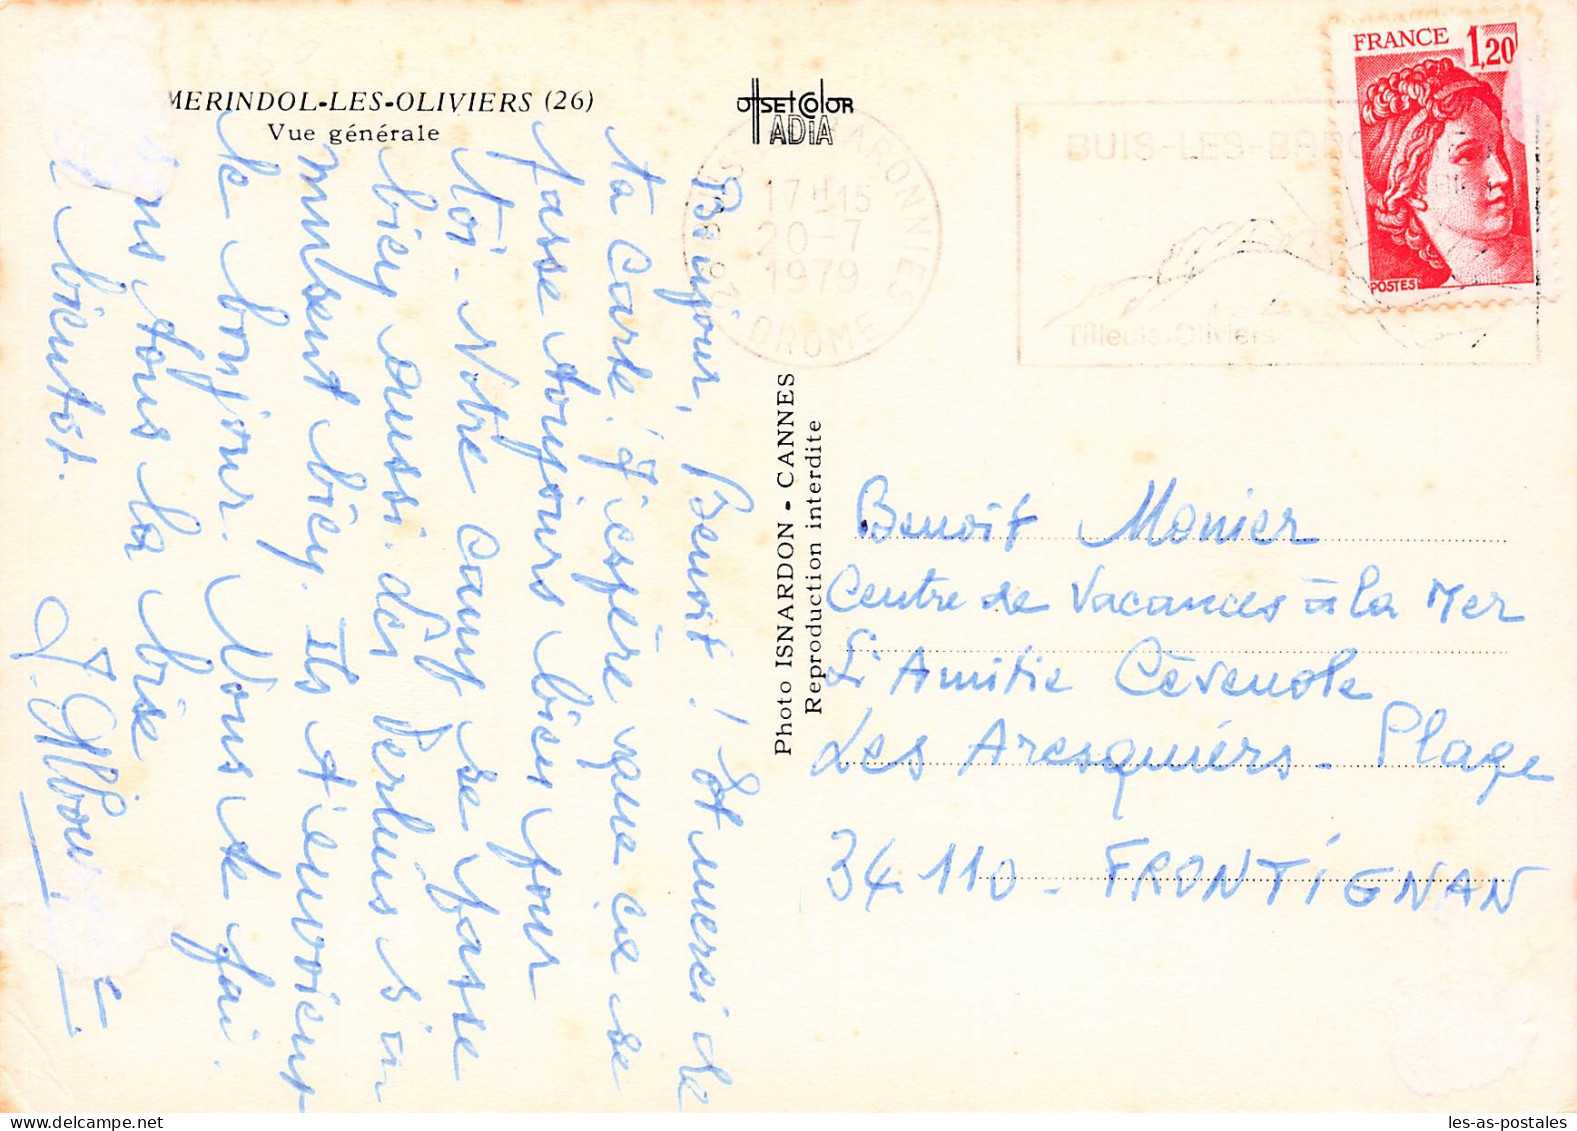 MERINDOL-LES-OLIVIERS (26)
Vue générale
OffSEt COlOR
ADIA
BUIS-LES-BARONNIES
17H15
20-7
1979
26 DROME
BUIS-LES-BARO
Tilleuls-Oliviers
FRANCE 1,20
POSTES
Photo ISNARDON - CANNES
Reproduction interdite
Bonjour, Benoit ! Et merci de
ta carte. J'espère que ça se
passe toujours bien pour
toi. Notre camp se passe
bien aussi. Les
s'a
musent bien. Ils t'envoient
le bonjour. Nous te fai
ons tous la bise
bientôt.
Benoit Monier
Centre de Vacances à la Mer
L'Amitié Cévenole
Les Aresquiers - Plage
34110 - FRONTIGNAN
les-as-postales